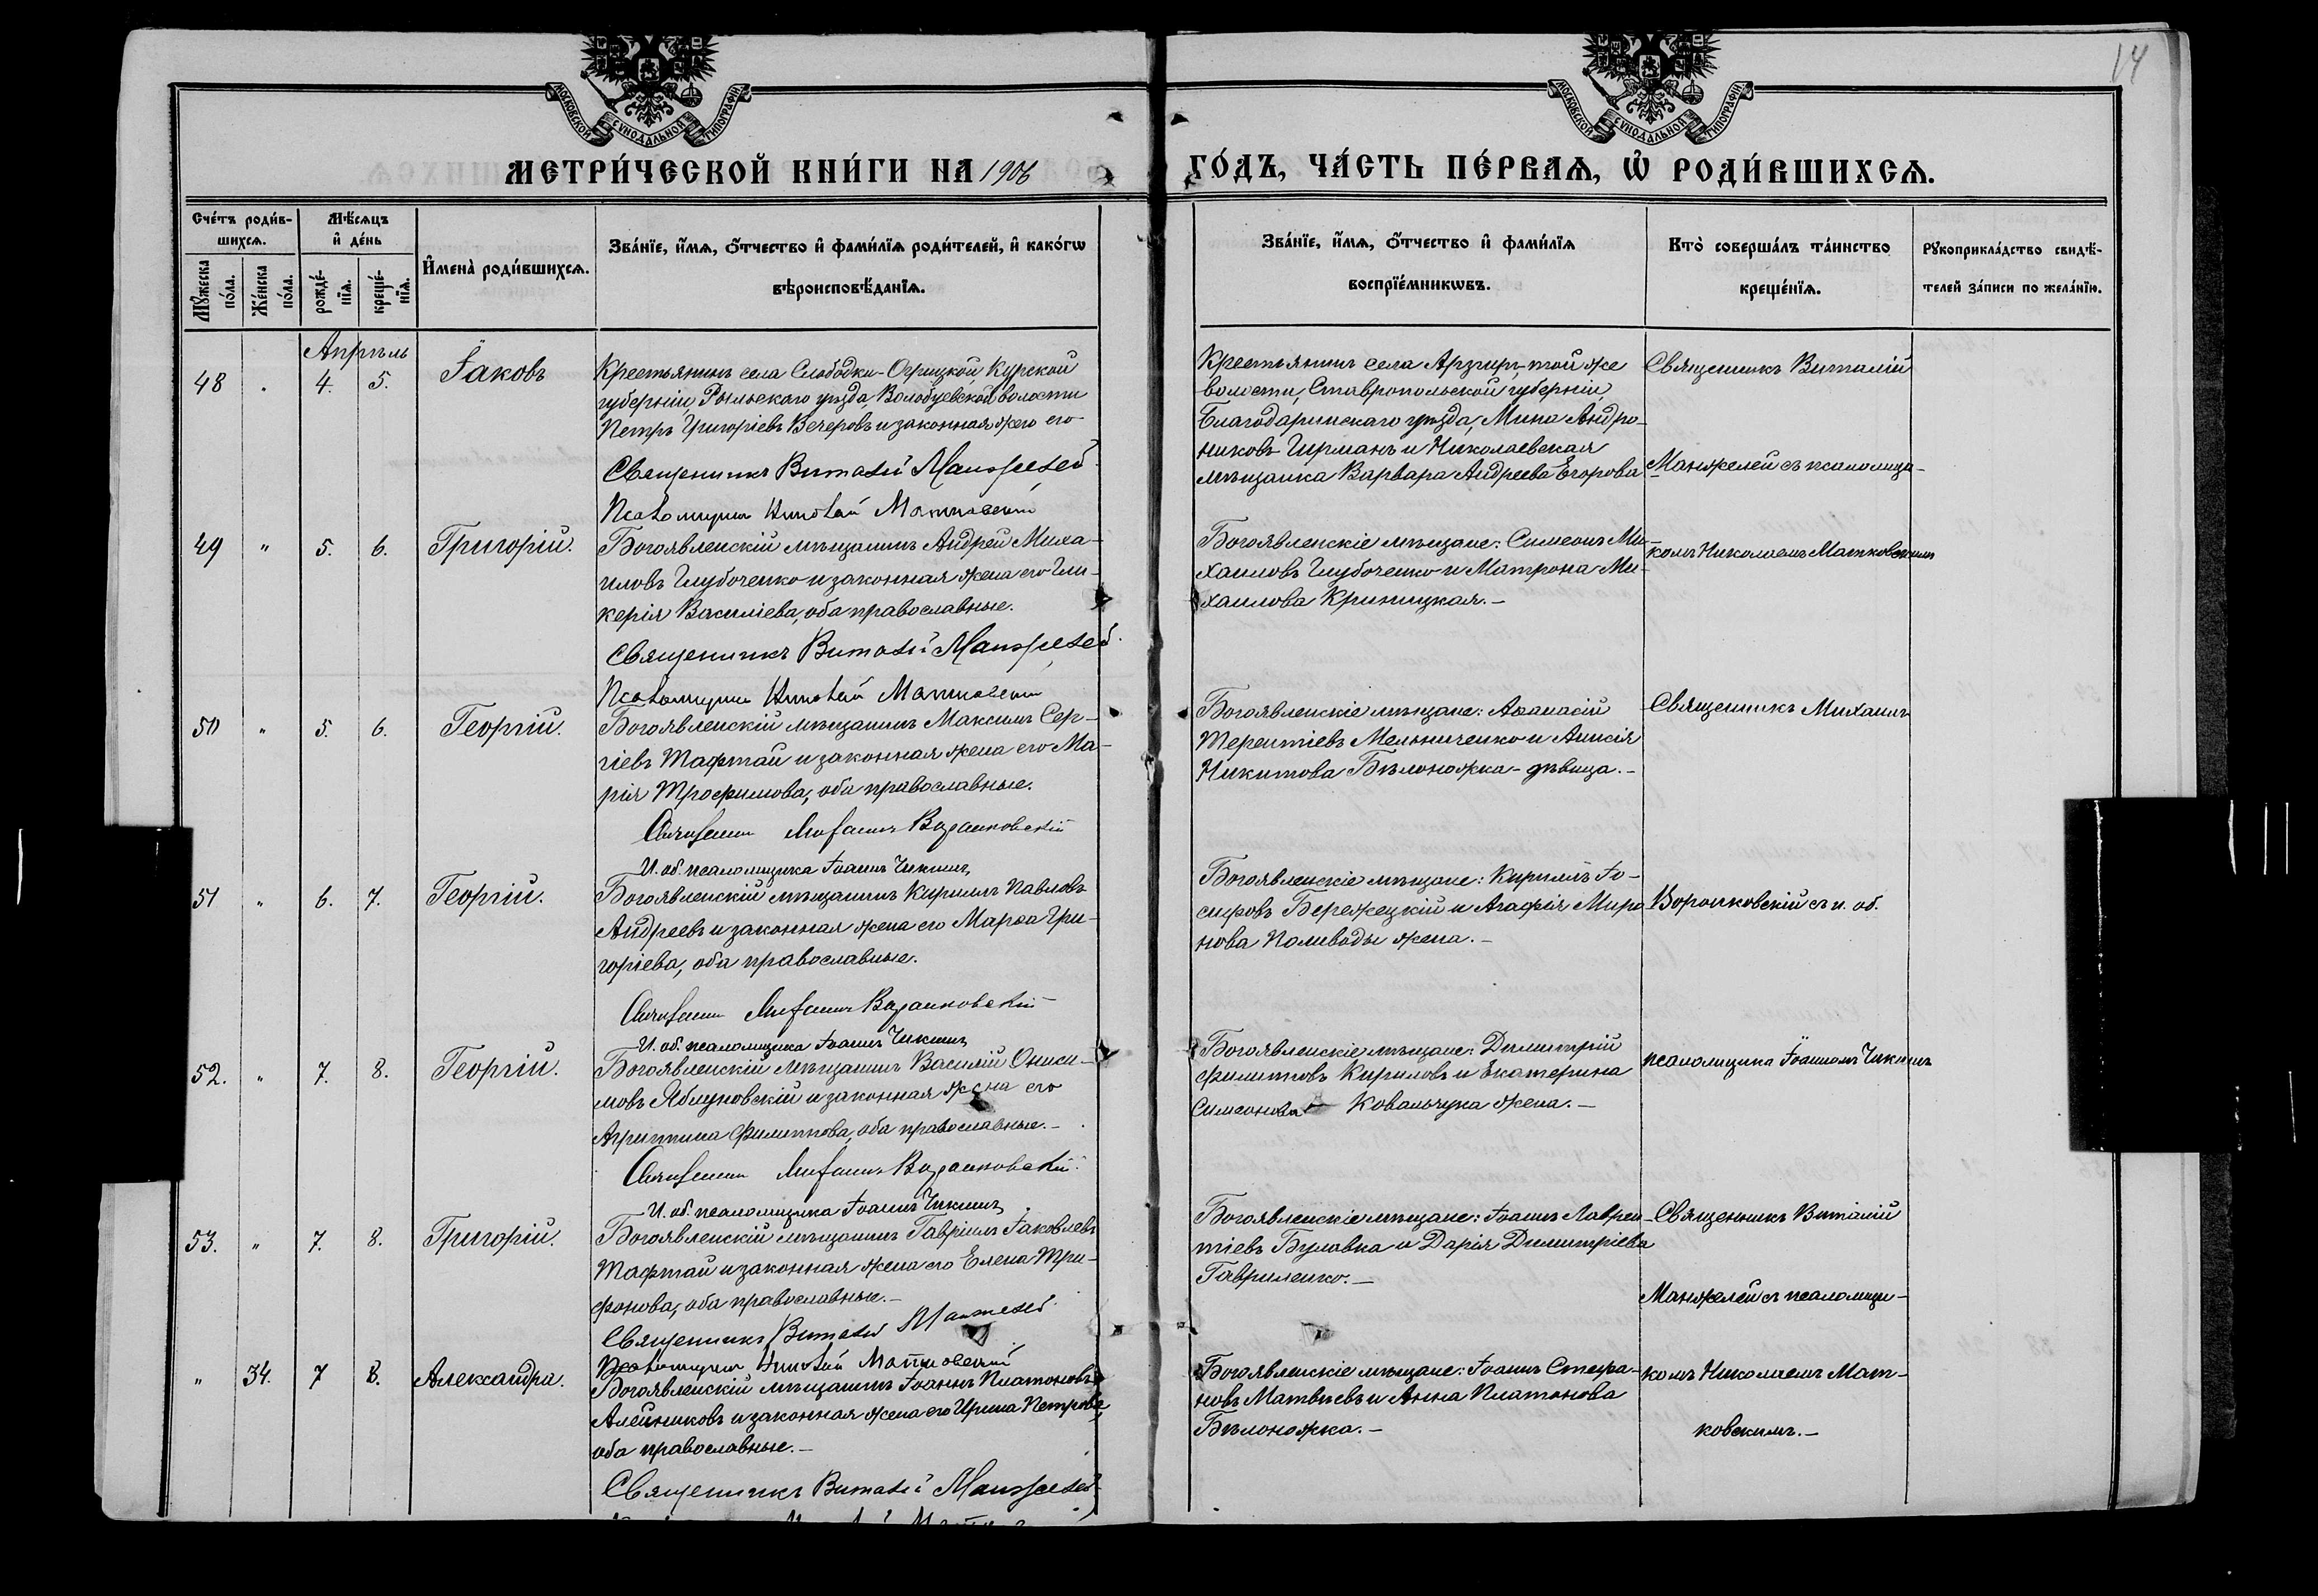 14
МОСКОВСКОЙ СѴНОДАЛЬНОЙ ТИПОГРАФІИ
МОСКОВСКОЙ СѴНОДАЛЬНОЙ ТИПОГРАФІИ
МЕТРИ́ЧЕСКОЙ КНИ́ГИ НА 1906
ГО́ДЪ, ЧА́СТЬ ПЕ́РВАѦ, Ѡ҆ РОДИ́ВШИХСѦ.
Сче́тъ роди́в-
шихсѧ.
Мѣ́сѧцъ
и҆ де́нь
И҆мена̀ роди́вшихсѧ.
Зва́нїе, и҆́мѧ, ѻ҆́тчество и҆ фами́лїѧ роди́телей, и҆ како́гѡ
вѣроисповѣ́данїѧ.
Мꙋ́жеска
по́ла.
Же́нска
по́ла.
рожде́-
нїѧ.
креще́-
нїѧ.
Зва́нїе, и҆́мѧ, ѻ҆́тчество и҆ фами́лїѧ
воспрїе́мникѡвъ.
Кто̀ соверша́лъ та́инство
креще́нїѧ.
Рꙋкоприкла́дство свидѣ́-
телей за́писи по жела́нїю.
Апрѣль
48 . 4. 5. Іаковъ
Крестьянинъ села Слободки-Огрицкой, Курской
губерніи, Рыльскаго уѣзда, Волобуевской волости
Петръ Григоріевъ Вечеровъ и законная жена его
Священникъ Виталій Манжелей
Псаломщикъ Николай Матковскій
Крестьянинъ села Арзгиръ, той же
волости, Ставропольской губерніи,
Благодаринскаго уѣзда, Мина Андро-
никовъ Гирманъ и Николаевская
мѣщанка Варвара Андреева Егорова
Священникъ Виталій
Манжелей съ псаломщи-
49 " 5. 6. Григорій.
Богоявленскій мѣщанинъ Андрей Миха-
иловъ Глубоченко и законная жена его Гли-
керія Василіева, оба православные.
Священникъ Виталій Манжелей
Псаломщикъ Николай Матковскій
Богоявленскіе мѣщане: Симеонъ Ми-
хаиловъ Глубоченко и Матрона Ми-
хаилова Криницкая.-
комъ Николаемъ Матковскимъ
50 " 5. 6. Георгій.
Богоявленскій мѣщанинъ Максимъ Сер-
гіевъ Тафтай и законная жена его Ма-
рія Трофимова, оба православные.
Священникъ Михаилъ Воронковскій
И. об. псаломщика Іоаннъ Чикинъ
Богоявленскіе мѣщане: Аѳанасій
Терентіевъ Мельниченко и Анисія
Никитова Бѣлоножка-дѣвица.-
Священникъ Михаилъ
51 " 6. 7. Георгій.
Богоявленскій мѣщанинъ Кириллъ Павловъ
Андреевъ и законная жена его Марѳа Гри-
горіева, оба православные.
Священникъ Михаилъ Воронковскій
И. об. псаломщика Іоаннъ Чикинъ
Богоявленскіе мѣщане: Кириллъ Іо-
сифовъ Бережецкій и Агафія Миро
нова Поливоды жена.-
Воронковскій съ и. об.
52. " 7. 8. Георгій.
Богоявленскій мѣщанинъ ВасилійОниси-
мовъ Яблуновскій и законная жена его
Агриппина Филиппова, оба православные.-
Священникъ Михаилъ Воронковскій
И. об. псаломщика Іоаннъ Чикинъ
Богоявленскіе мѣщане: Димитрій
Филипповъ Кириловъ и Екатерина
Симеонова Ковальчука жена.-
псаломщика Іоанномъ Чикинымъ
53. " 7. 8. Григорій.
Богоявленскій мѣщанинъ Гавріилъ Іаковлевъ
Тафтай и законная жена его Елена Три-
фонова, оба православные.-
Священникъ Виталій Манжелей
Псаломщикъ Николай Матковскій
Богоявленскіе мѣщане: Іоаннъ Лаврен-
тіевъ Булавка и Дарія Димитріева
Гавриленко.-
Священникъ Виталій
Манжелей съ псаломщи-
" 34. 7 8. Александра.
Богоявленскій мѣщанинъ Іоаннъ Платоновъ
Алейниковъ и законная жена его Ирина Петрова,
оба православные.-
Священникъ Виталій Манжелей
Богоявленскіе мѣщане: Іоаннъ Стефа-
новъ Матвѣевъ и Анна Платонова
Бѣлоножка.-
комъ Николаемъ Мат-
ковскимъ.-